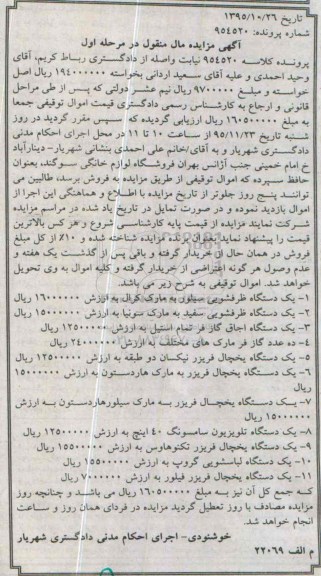 تاریخ ۱۳۹۵/۱۰/۲۶
شماره پرونده: ۹۵۴۵۲۰
آگهی مزایده مال منقول در مرحله اول
پرونده کلاسه ۹۵۴۵۲۰ نیابت واصله از دادگستری رباط کریم، آقای
وحید احمدی و علیه آقای سعید اردانی بخواسته ۱۹۴۰۰۰۰۰۰ ریال اصل
خواسته و مبلغ ۹۷۰۰۰۰۰ ریال نیم عشر دولتی که پس از طی مراحل
قانونی و ارجاع به کارشناس رسمی دادگستری قیمت اموال توقیفی جمعا
به مبلغ ۱۶۰۵۰۰۰۰۰ ریال ارزیابی گردیده که سپس مقرر گردید در روز
شنبه تاریخ ۹۵/۱۱/۲۳ از ساعت ۱۰ تا ۱۱ در محل اجرای احکام مدنی
دادگستری شهریار و به آقای/خانم علی احمدی بنشانی شهریار- دینارآباد
خ امام خمینی جنب آژانس بهران فروشگاه لوازم خانگی سوگند، بعنوان
حافظ سپرده که اموال توقیفی از طریق مزایده به فروش برسد، طالبین می
توانند پنج روز جلوتر از تاریخ مزایده با اطلاع و هماهنگی این اجرا از
اموال بازدید نموده و در صورت تمایل در تاریخ یاد شده در مراسم مزایده
شرکت نمایند مزایده از قیمت پایه کارشناسی شروع و هر کس بالاترین
قیمت را پیشنهاد نماید بعنوان برنده مزایده شناخته شده و ۱۰٪ از کل مبلغ
فروش در همان حال از خریدار گرفته و باقی پس از گذشت یک هفته و
عدم وصول هر گونه اعتراضی از خریدار گرفته و کلیه اموال به وی تحویل
خواهد شد. اموال توقیفی به شرح زیر می باشد.
۱- یک دستگاه ظرفشویی سیلور به مارک کرال به ارزش ۱۶۰۰۰۰۰۰ ریال
۲- یک دستگاه ظرفشویی سفید به مارک سونیا به ارزش ۱۵۰۰۰۰۰۰ ریال
۳- یک دستگاه اجاق گاز فر تمام استیل به ارزش ۱۲۵۰۰۰۰۰ ریال
۴- ده عدد گاز فر مارک های مختلف به ارزش ۲۴۰۰۰۰۰۰ ریال
۵- یک دستگاه یخچال فریزر نیکسان دو طبقه به ارزش ۱۲۵۰۰۰۰۰ ریال
۶- یک دستگاه یخچال فریزر به مارک هاردستون به ارزش ۱۵۰۰۰۰۰۰
ریال
۷- یک دستگاه یخچال فریزر به مارک سیلورهاردستون به ارزش
۱۵۰۰۰۰۰۰ ریال
۸- یک دستگاه تلویزیون سامسونگ ۴۰ اینچ به ارزش ۱۲۵۰۰۰۰۰ ریال
۹- یک دستگاه یخچال فریزر تکنوهاوس به ارزش ۱۵۵۰۰۰۰۰ ریال
۱۰- یک دستگاه لباسشویی گروپ به ارزش ۱۵۵۰۰۰۰۰ ریال
۱۱- یک دستگاه یخچال فریزر فیلور به ارزش ۷۰۰۰۰۰۰ ریال
که جمع کل آن نیز به مبلغ ۱۶۰۵۰۰۰۰۰ ریال می باشد و چنانچه روز
مزایده مصادف با روز تعطیل گردید مزایده در فردای همان روز و ساعت
انجام خواهد شد.
خوشنودی- اجرای احکام مدنی دادگستری شهریار
م الف ۲۲۰۶۹